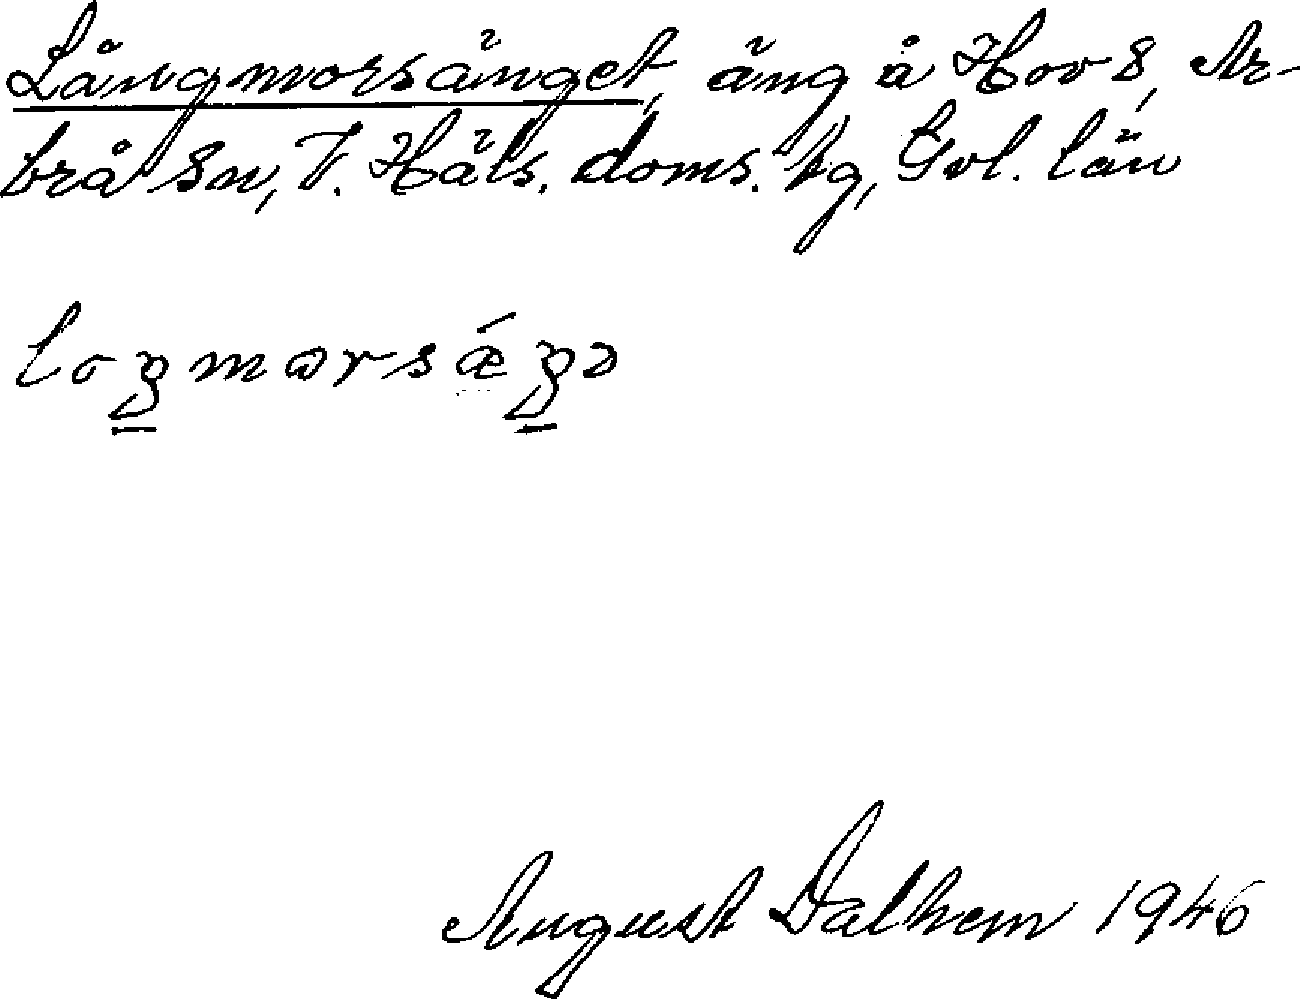 Långmorsänget, äng å Hov 8, Ar-
brå sn, V. Häls. doms. tg, Gvl. län
loŋmɷrsǽŋə
August Dalhem 1946